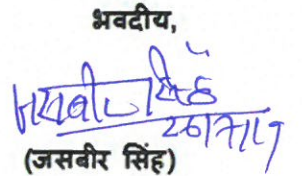 भवदीय,
जसबीर सिंह
(जसबीर सिंह)